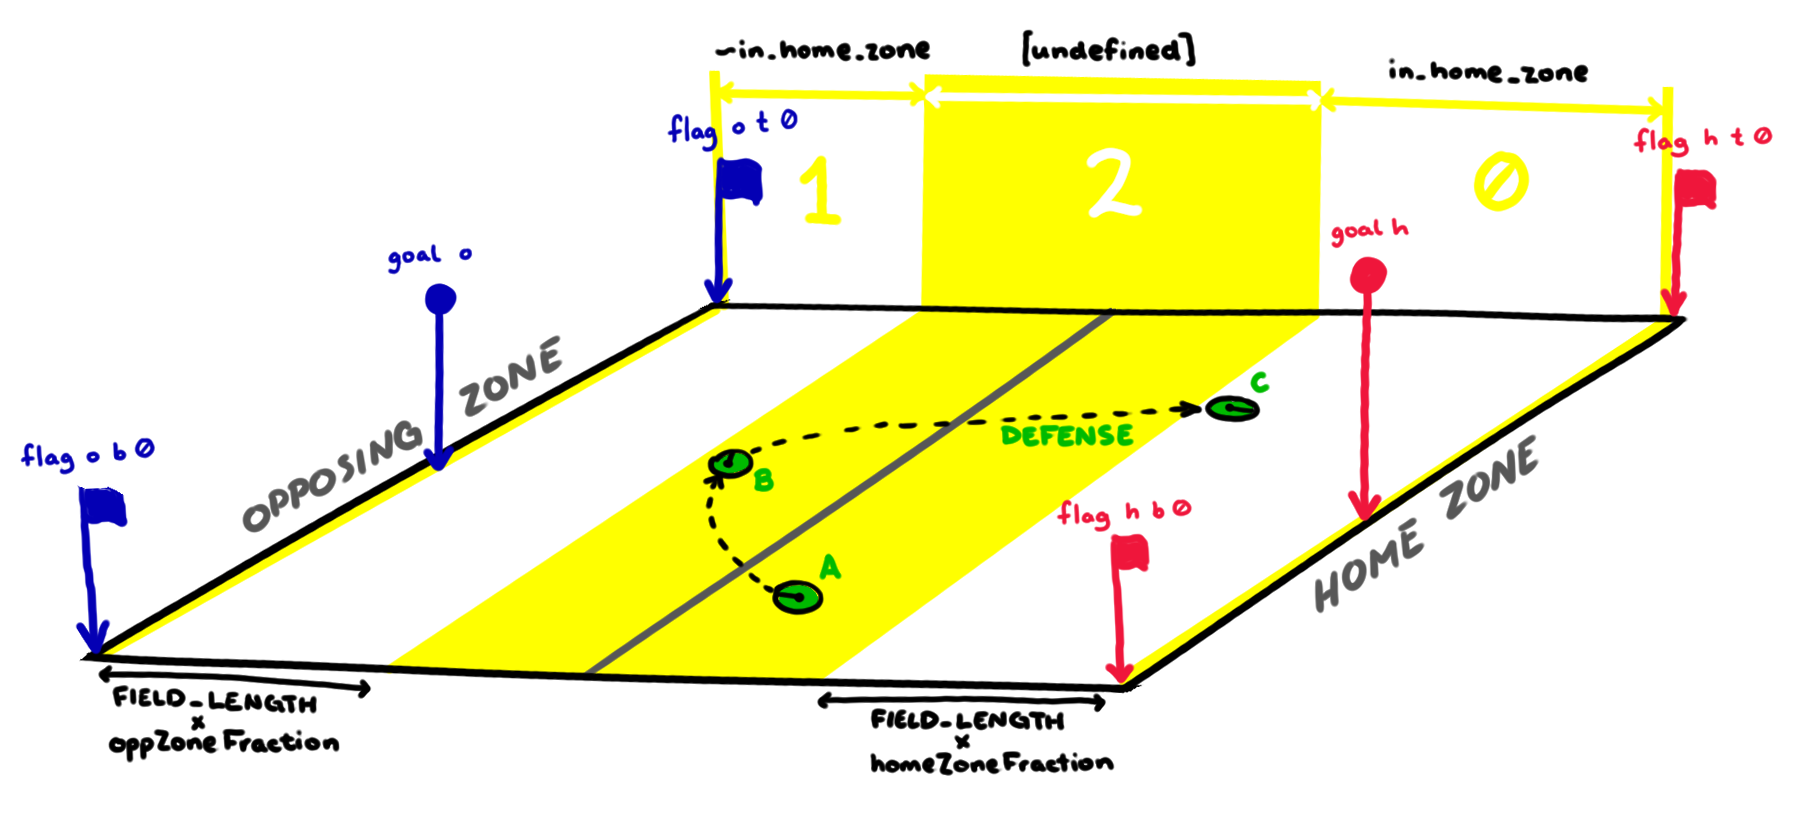 ~in_home_zone
[undefined]
in_home_zone
flag o t 0
flag h t 0
1
2
0
goal o
goal h
OPPOSING ZONE
C
DEFENSE
flag o b 0
B
flag h b 0
A
HOME ZONE
FIELD_LENGTH
x
oppZoneFraction
FIELD_LENGTH
x
homeZoneFraction